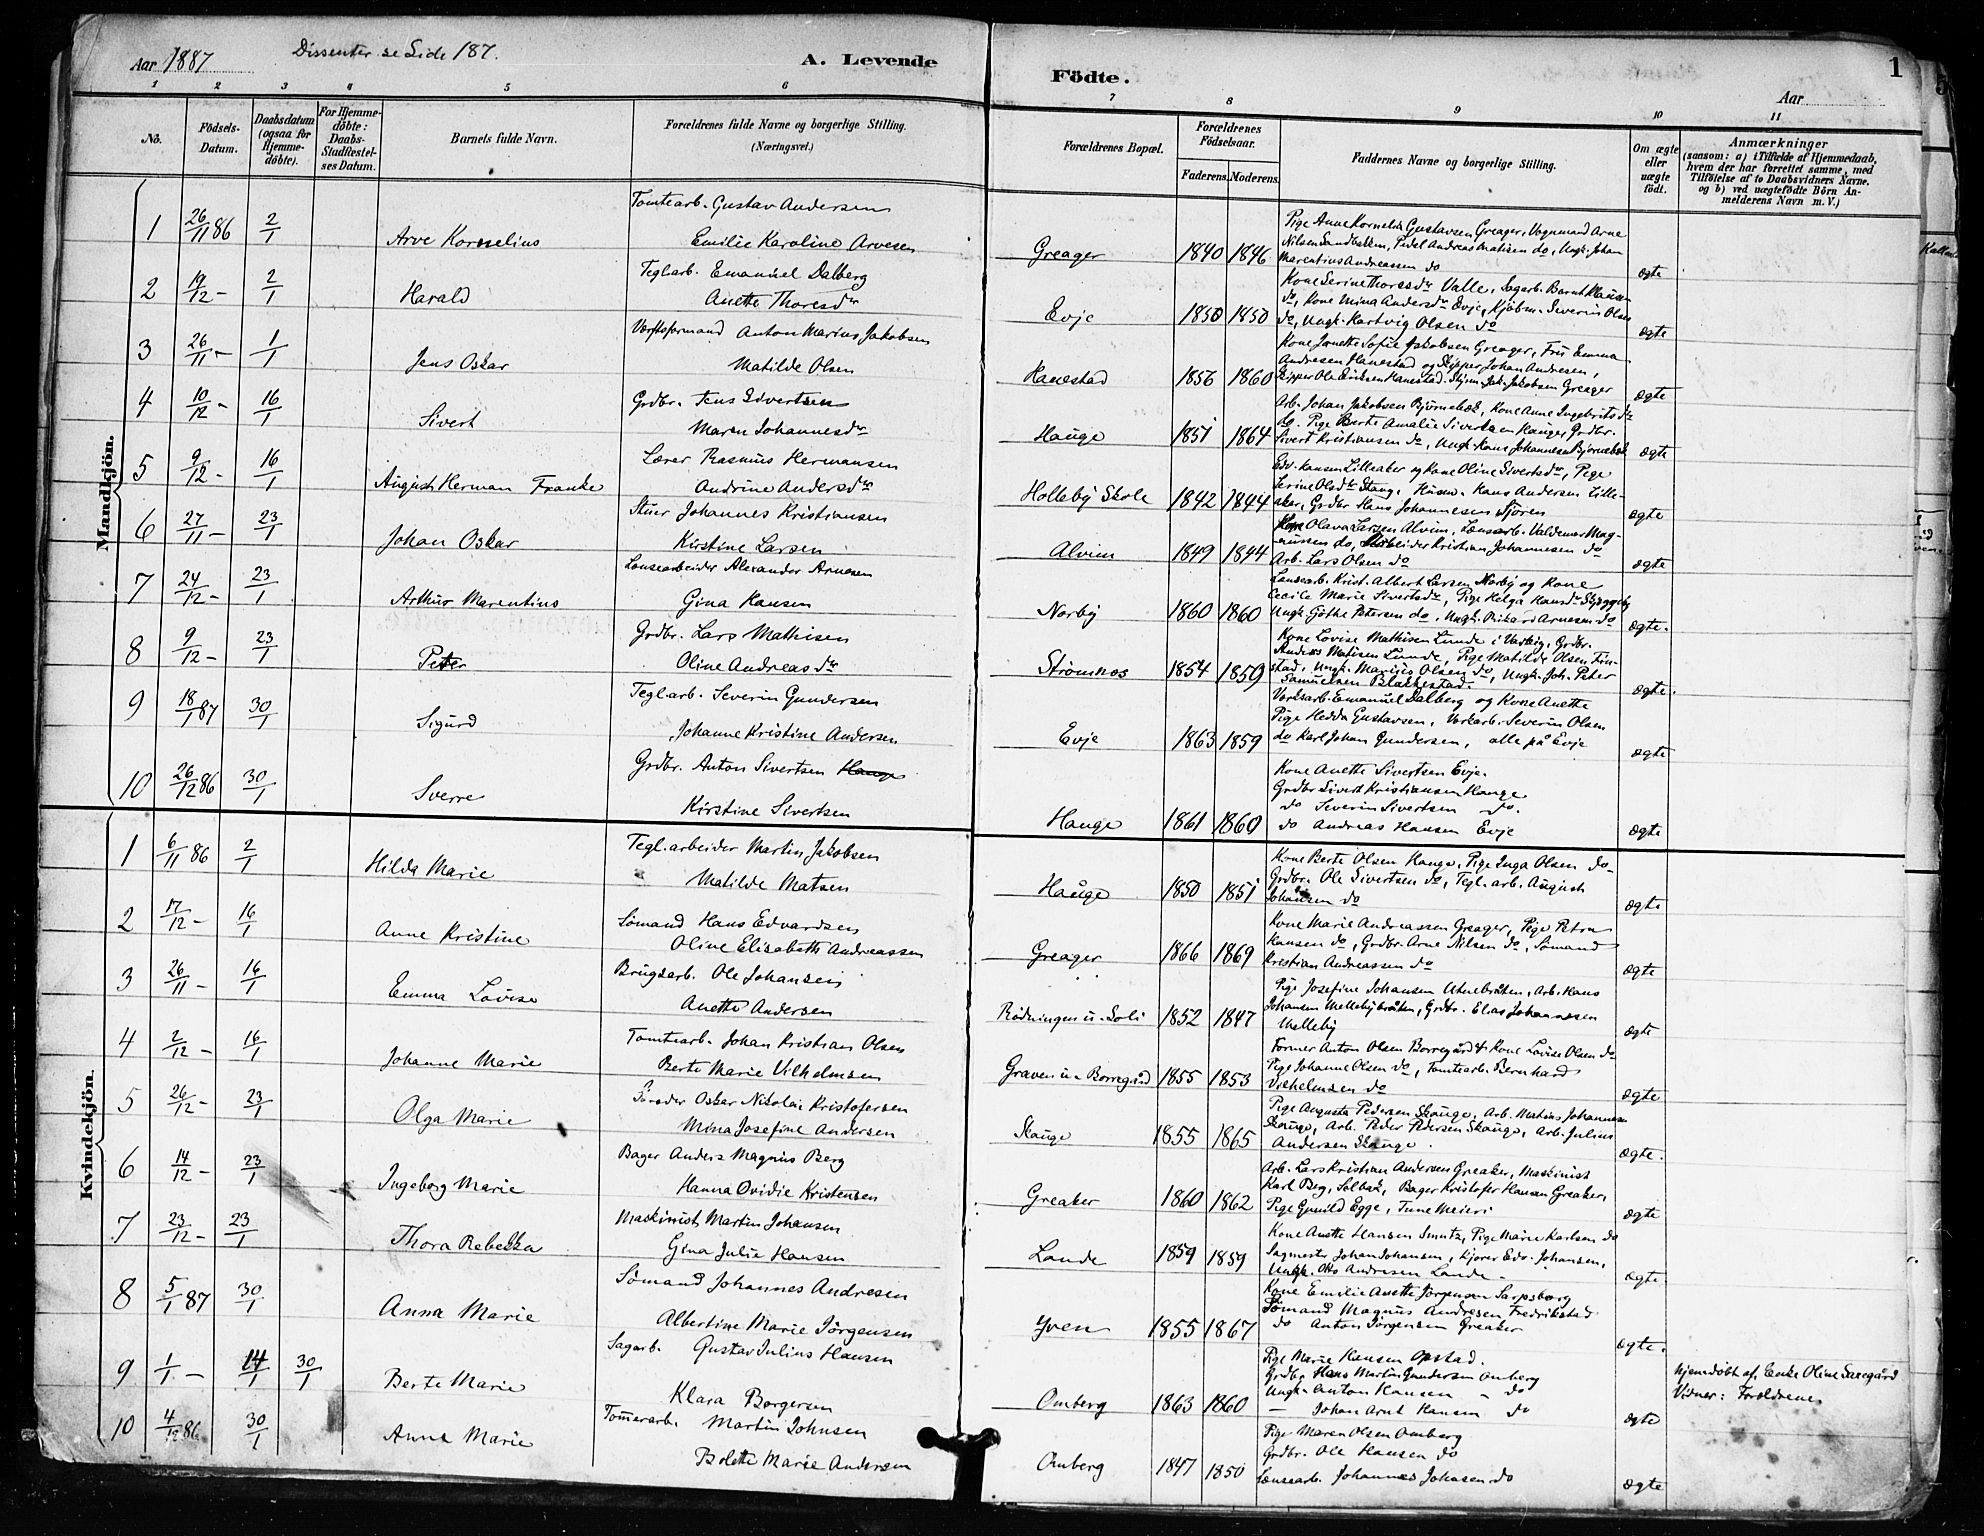 Aar 1887 Dissenter se Side 187. A. Levende Födte. Aar 1
1 2 3 4 5 6 7 8 9 10 11
No. Födsels-Datum. Daabsdatum (ogsaa for Hjemme-döbte). For Hjemme-döbte: Daabs-Stadfæstel-ses Datum. Barnets fulde Navn. Forældrenes fulde Navne og borgerlige Stilling. (Næringsvei.) Forældrenes Bopæl. Forældrenes Födselsaar. Faderens. Moderens. Faddernes Navne og borgerlige Stilling. Om ægte eller uægte födt. Anmærkninger (saasom: a) i Tilfælde af Hjemmedaab, hvem der har forrettet samme, med Tilföielse af to Daabsvidners Navne, og b) ved uægtefödte Börn Anmelderens Navn m. V.)
Mandkjön.
1 26/11 86 2/1 Arve Kornelius Tomtearb. Gustav Andersen
Emilie Karoline Arvesen Greager 1840 1846 Pige Anne Kornelia Gustavsen Greager, Vognmand Arne
Nilsen Sandbakken, Pedel Andreas Matisen do, Ungk. Johan
Marentius Andreassen do ægte
2 19/12 – 2/1 Harald Teglarb. Emanuel Dalberg
Anette Thoresdr Evje 1850 1850 Kone Serine Thoresdr Valle, Sagarb. Bernt Klausen
do, Kone Mina Andersdr Evje, Kjøbm. Severin Olsen
do, Ungk. Hartvig Olsen do ægte
3 26/11 – 1/1 Jens Oskar Værftsformand Anton Marius Jakobsen
Matilde Olsen Hanestad 1856 1860 Kone Janette Sofie Jakobsen Greager, Fru Emma
Andresen Hanestad og Skipper Johan Andresen,
Skipper Ole Eriksen Hanestad. Styrm. Jak. Jakobsen Greager ægte
4 10/12 – 16/1 Sivert Grdbr. Jens Sivertsen
Maren Johannesdr Hauge 1851 1864 Arb. Johan Jakobsen Bjørnebæk, Kone Anne Ingebrigtsdr
do. Pige Berte Amalie Sivertsen Hauge, Grdbr.
Sivert Kristiansen do, Ungk. Hans Johannesen Bjørnebæk ægte
5 9/12 – 16/1 August Herman Franke Lærer Rasmus Hermansen
Andrine Andersdr Holleby Skole 1842 1844 Edv. Hansen Lilleaker og Kone Oline Sivertsdr, Pige
Serine Olsdr Stang, Husm. Hans Andersen Lille-
aker, Grdbr Hans Johannesen Sjøren ægte
6 27/11 – 23/1 Johan Oskar Stuer Johannes Kristiansen
Kirstine Larsen Alvim 1849 1844 Kone Olava Larsen Alvim, Lænsarb. Valdemar Mag-
nussen do, Arbeider Kristian Johannesen do
Arb. Lars Olsen do ægte
7 24/12 – 23/1 Arthur Marentius Lænsearbeider Alexander Arnesen
Gina Hansen Norby 1860 1860 Lænsearb. Krist. Albert Larsen Norby og Kone
Cecilie Marie Sivertsdr, Pige Helga Hansdr
Ungk. Göthe Petersen do, Ungk. Rikard Arnesen do ægte.
8 9/12 – 23/1 Peter Grdbr. Lars Mathisen
Oline Andreasdr Strömnes 1854 1859 Kone Lovise Mathisen Lunde i Varteig, Grdbr.
Andreas Matisen Lunde, Pige Matilde Olsen Fin-
stad, Ungk. Marius Olsen do, Ungk. Joh. Peter
Samuelsen Blakkestad. ægte.
9 18/1 87 30/1 Sigurd Teglarb. Severin Gundersen
Johanne Kristine Andersen Evje 1863 1859 Værksarb. Emanuel Dalberg og Kone Anette
Pige Hedda Gustavsen, Værkarb. Severin Olsen
do Karl Johan Gundersen, alle på Evje ægte
10 26/12 86 30/1 Sverre Grdbr. Anton Sivertsen Hauge
Kirstine Sivertsen Hauge 1861 1860 Kone Anette Sivertsen Evje.
Grdbr Sivert Kristiansen Hauge
do Severin Sivertsen do.
do Andreas Hansen Evje ægte
Kvindekjön.
1 6/11 86 2/1 Hilda Marie Tegl.arbeider Martin Jakobsen
Matilde Matsen Hauge 1850 1851 Kone Berte Olsen Hauge, Pige Inga Olsen do
Grdbr. Ole Sivertsen do, Tegl.arb. August
Johansen do ægte
2 7/12 – 16/1 Anne Kristine Sömand Hans Edvardsen
Oline Elisabeth Andreassen Greager 1866 1869 Kone Marie Andreassen Greager, Pige Petra
Hansen do, Grdbr. Arne Nilsen do, Sömand
Kristian Andreassen do ægte
3 26/11 – 16/1 Emma Lovise Brugsarb. Ole Johansen
Anette Andersen Rödningen u. Soli 1852 1847 Pige Josefine Johansen Utnebråten, Arb. Hans
Johansen Mellebybråten, Grdbr. Elias Johannesen
Melleby ægte
4 2/12 – 16/1 Johanne Marie Tomtearb. Johan Kristian Olsen
Berte Marie Vilhelmsen Graven u. Borregård 1855 1853 Former Anton Olsen Borregård & Kone Lovise Olsen do
Pige Johanne Olsen do, Tomtearb. Bernhard
Vilhelmsen do ægte
5 26/12 – 23/1 Olga Marie Oskar Nikolai Kristofersen
Mina Josefine Andersen Skauge 1855 1865 Pige Augusta Pedersen Skauge, Arb. Matias Johannesen
Skauge, Arb. Peder Pedersen Skauge, Arb. Julius
Andersen Skauge. ægte.
6 14/12 – 23/1 Ingeborg Marie Bager Anders Magnus Berg
Hanna Ovidie Kristensen Greaker 1860 1862 Arb. Lars Kristian Andersen Greaker, Maskinist
Karl Berg, Solbak, Bager Kristofer Hansen Greaker,
Pige Gunild Egge, Tune Meieri ægte
7 23/12 – 23/1 Thora Rebekka Maskinist Martin Johansen
Gina Julie Hansen Lande 1859 1859 Kone Anette Hansen Smutz, Pige Marie Karlsen do
Sagmester Johan Johansen, Kjører Edv. Johansen,
Ungk. Otto Andresen Lande. ægte
8 5/1 87 30/1 Anna Marie Sömand Johannes Andresen
Albertine Marie Jörgensen Yven 1855 1867 Kone Emilie Anette Jörgensen Sarpsborg
Sömand Magnus Andresen Fredrikstad
do Anton Jörgensen Greaker ægte.
9 1/1 – 14/1 30/1 Berte Marie Sagarb. Gustav Julius Hansen
Klara Borgersen Omberg 1863 1860 Pige Marie Hansen Opstad.
Grdbr Hans Martin Gundersen Omberg
Ungk. Anton Hansen – do
– Johan Arnt Hansen do ægte Hjemdöbt af Enke Oline Saxegård
Vidner: Forældrene
10 4/12 86 30/1 Anna Marie Tömerarb. Martin Johnsen
Bolette Marie Andersen Omberg 1847 1850 Pige Maren Olsen Omberg
Grdbr. Ole Hansen do
Lænsearb. Johannes Johansen do ægte